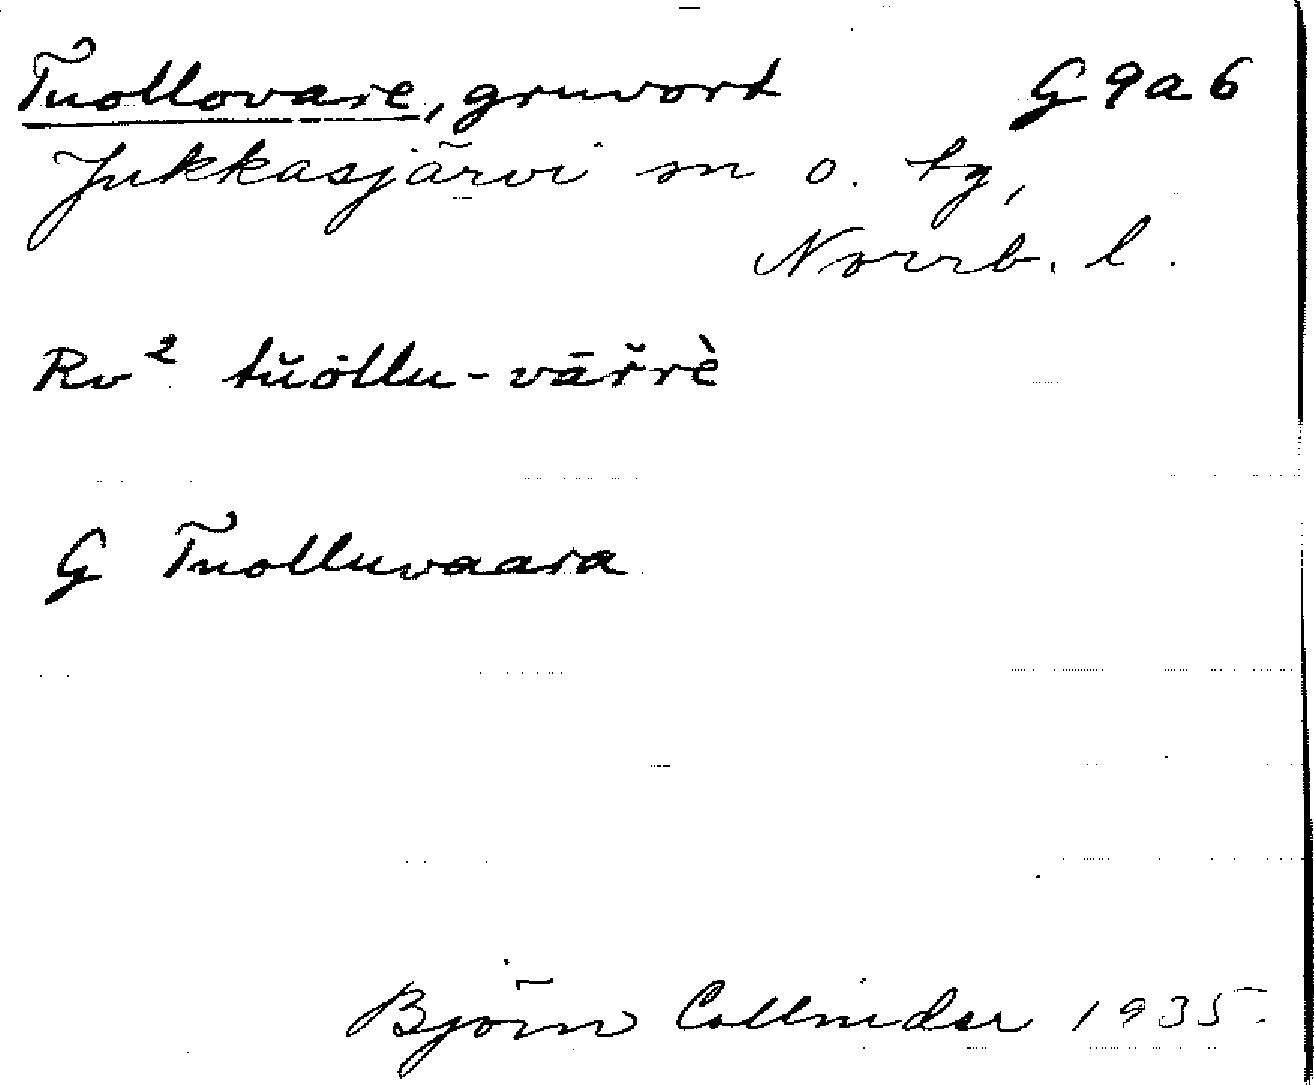 Tuollovare, gruvort G 9 a 6
Jukkasjärvi sn o. tg,
Norrb. l.
Rv² tŭollu-vāřrè
G Tuolluvaara
Björn Collinder 1935.